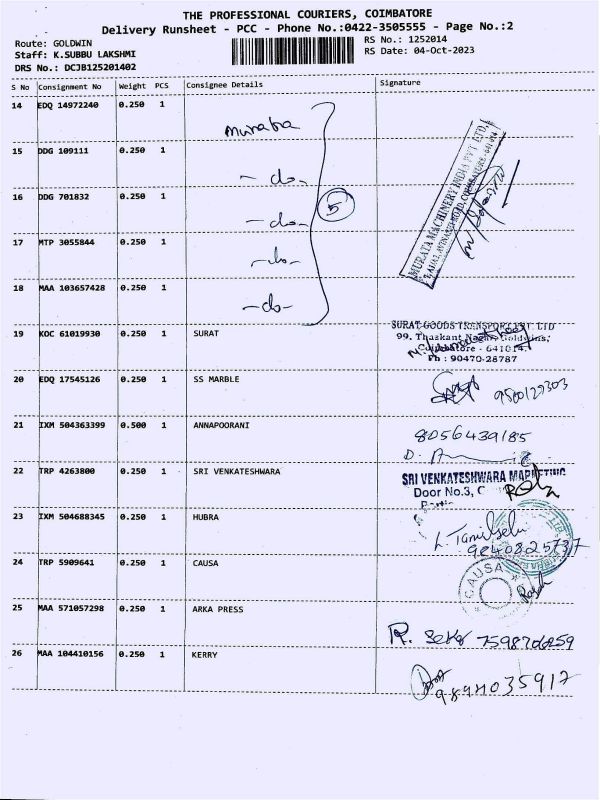 THE PROFESSIONAL COURIERS, COIMBATORE
Delivery Runsheet - PCC - Phone No.:0422-3505555 - Page No.:2
Route: GOLDWIN
RS No.: 1252014
Staff: K.SUBBU LAKSHMI
RS Date: 04-Oct-2023
DRS No.: DCJB125201402
S No Consignment No Weight PCS Consignee Details Signature
14 EDQ 14972240 0.250 1 murata
15 DDG 109111 0.250 1 -do-
16 DDG 701832 0.250 1 -do-
5
17 MTP 3055844 0.250 1 -do-
18 MAA 103657428 0.250 1 -do-
MURATA MACHINERY INDIA PVT LTD,
19 KOC 61019930 0.250 1 SURAT
SURAT GOODS TRANSPORT PVT. LTD
99, Thaskant Nagar, Goldwins,
Coimbatore - 641014.
Ph : 90470-28787
20 EDQ 17545126 0.250 1 SS MARBLE
21 IXM 504363399 0.500 1 ANNAPOORANI
8056439185
D.
22 TRP 4263800 0.250 1 SRI VENKATESHWARA
SRI VENKATESHWARA MARKETING
Door No.3,
23 IXM 504688345 0.250 1 HUBRA
24 TRP 5909641 0.250 1 CAUSA
CAUSA
25 MAA 571057298 0.250 1 ARKA PRESS
R. Sekar
26 MAA 104410156 0.250 1 KERRY